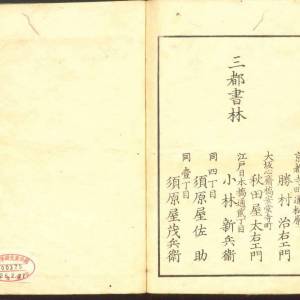 三都書林
京都寺町通松原
勝村治右エ門
大坂心斎橋安堂寺町
秋田屋太右エ門
江戸日本橋通貳丁目
小林新兵衛
同四丁目
須原屋佐助
同壹丁目
須原屋茂兵衛